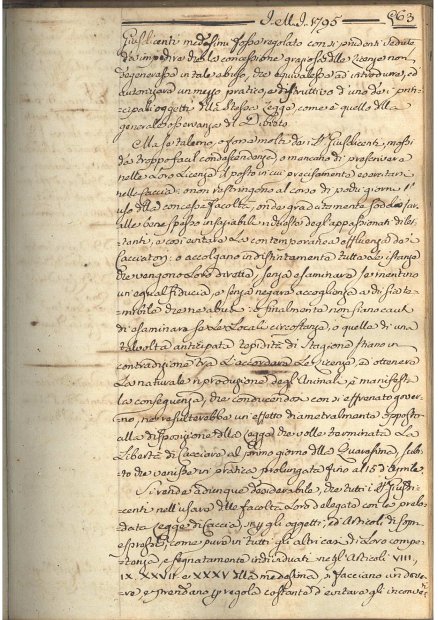 1795 863
Giusdicenti medesimi fosse regolato con sì prudenti vedute
da impedire che la concessione graziosa delle Licenze non
degenerasse in tale abuso, che equivalesse ad introdurre, ed
autorizzare un mezzo pratico, e distruttivo d'uno dei prin-
cipali oggetti della stessa Legge come è quello della
generale osservanza di Divieto.
Ma se taluno, o forse molti dei SS.ri Giusdicenti, mossi
da troppo facil condescendenza o mancano di prescrivere
nelle Loro Licenze il posto in cui precisamente esercitare
nelle Caccie: o non restringono al corso di pochi giorni l'
uso delle concesse facoltà, onde gradatamente soddisfare
alle bene spesso insaziabili richieste degl'appassionati dilet-
tanti, e così evitare la contemporanea affluenza dei
Cacciatori: o accolgono indistintamente tutte le istanze
che vengono Loro dirette, senza esaminare se meritino
un'egual fiducia, e senza negare accoglienza a chi sia te-
mibile che ne abusi: o finalmente non siano cauti
di esaminare se le Locali circostanze, o quella di una
talvolta anticipata tepidità di Stagione stiano in
contradizione tra l'accordare le Licenze, ed ottenere
la naturale riproduzione degl'Animali, è manifesta
la conseguenza, che conducendosi con sì effrenato gover-
no, ne risulterebbe un effetto diametralmente opposto
alla disposizione della Legge che volle terminata la
Libertà di Cacciare al primo giorno della Quaresima, subi-
to che venisse in pratica prolungata fino al 15 d'Aprile.
Si rende adunque desiderabile, che tutti i SS.ri Giusdi-
centi nell'usare delle facoltà Loro delegate con la prelo-
data Legge di Caccia, per gli oggetti, ed Articoli di sopra
espressi, come pure in tutti gli altri casi di Loro compe-
tenza, e segnatamente individuati negli Articoli VIII,
IX, XXVII e XXXV della medesima, si facciano un dove-
re e prendano per regola costante d'evitare gl'inconve-